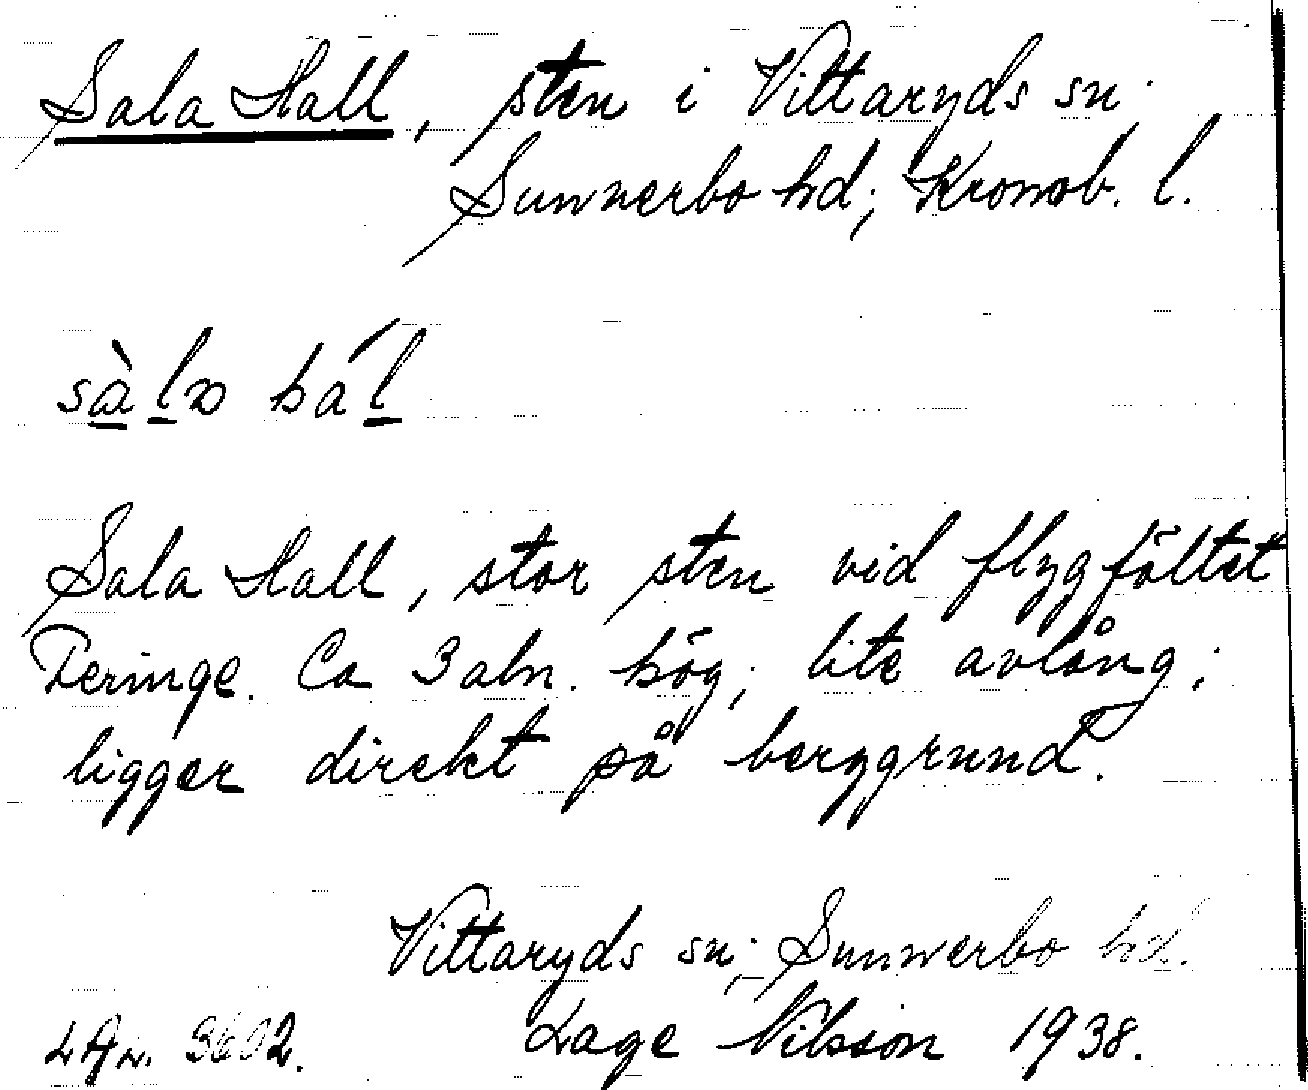 Sala Hall, sten i Vittaryds sn.
Sunnerbo hd; Kronob. l.
sàlɷ hál
Sala Hall, stor sten vid flygfältet
Feringe. Ca 3 aln. hög; lite avlång;
ligger direkt på berggrund.
Vittaryds sn; Sunnerbo hd.
Lage Nilsson 1938.
3602.